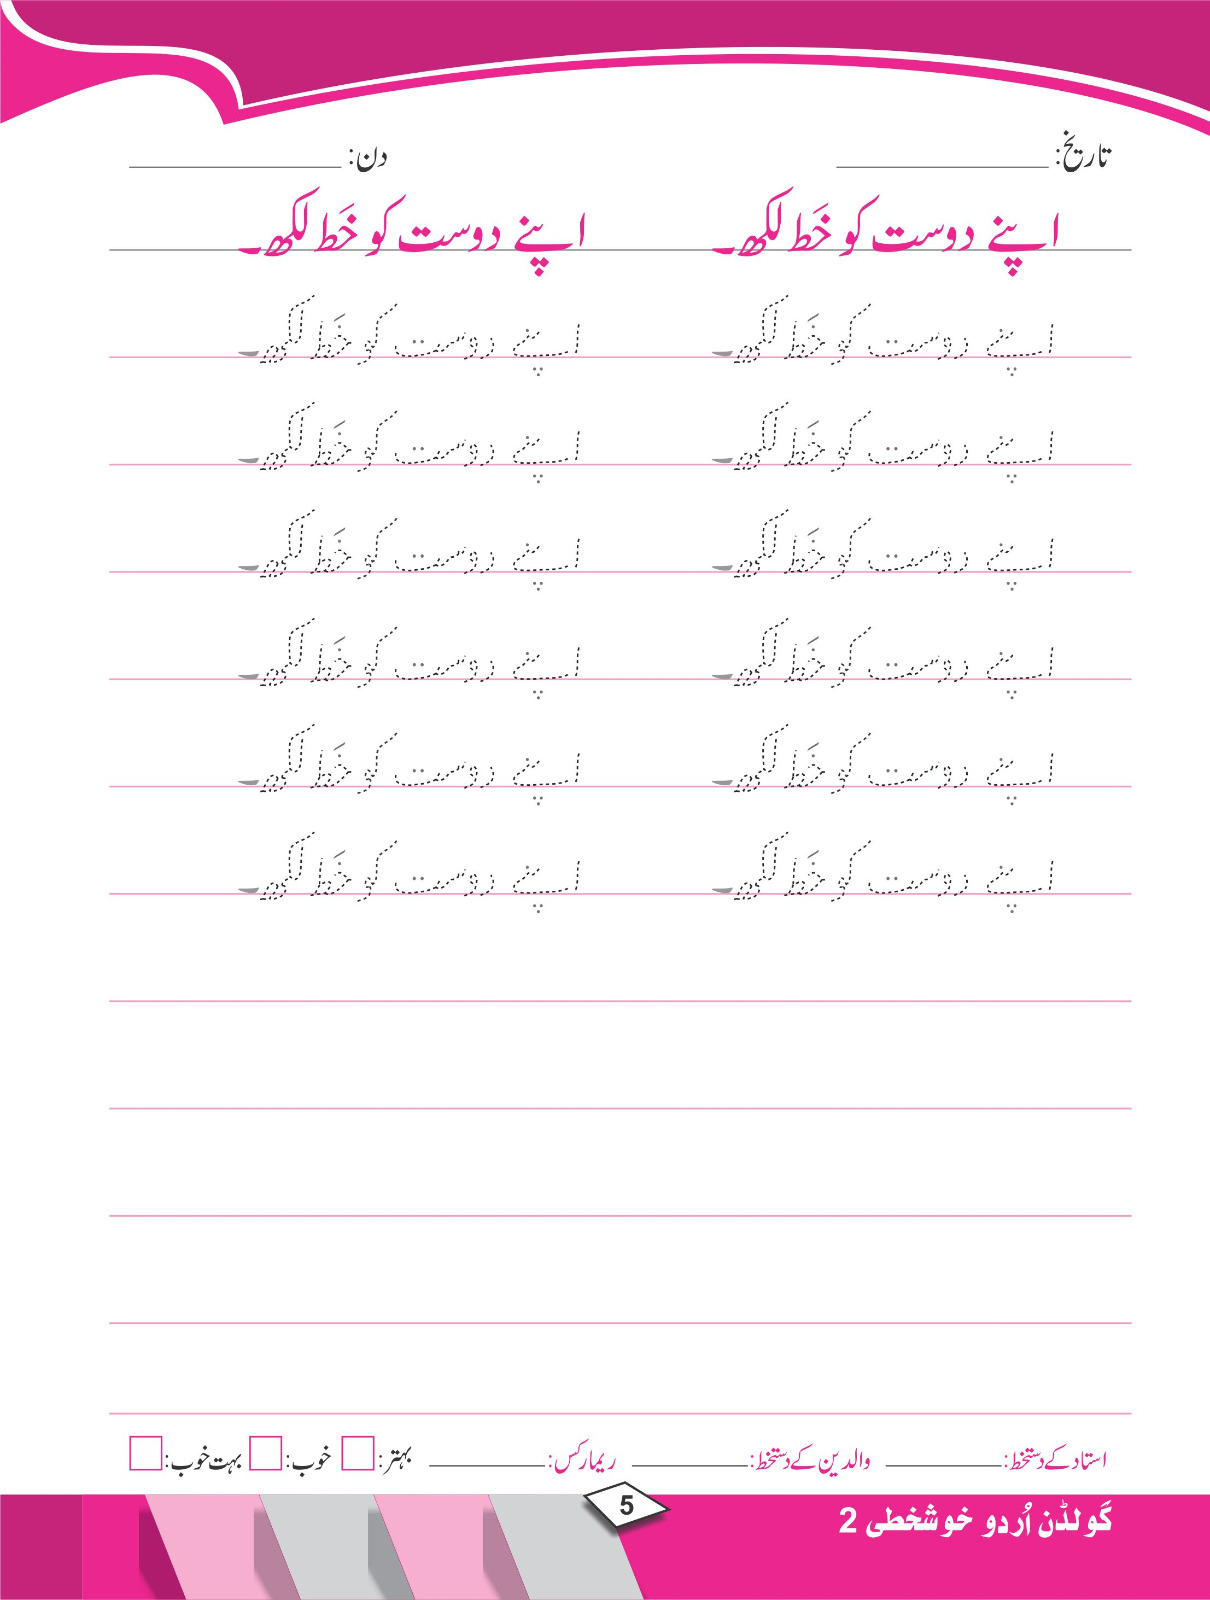 تاریخ: ____________ دن: ____________
اپنے دوست کو خَط لکھ۔ اپنے دوست کو خَط لکھ۔
اپنے دوست کو خَط لکھ۔ اپنے دوست کو خَط لکھ۔
اپنے دوست کو خَط لکھ۔ اپنے دوست کو خَط لکھ۔
اپنے دوست کو خَط لکھ۔ اپنے دوست کو خَط لکھ۔
اپنے دوست کو خَط لکھ۔ اپنے دوست کو خَط لکھ۔
اپنے دوست کو خَط لکھ۔ اپنے دوست کو خَط لکھ۔
اپنے دوست کو خَط لکھ۔ اپنے دوست کو خَط لکھ۔
استاد کے دستخط: ________ والدین کے دستخط: ________ ریمارکس: ________ بہتر: خوب: بہت خوب:
5
گولڈن اُردو خوشخطی 2